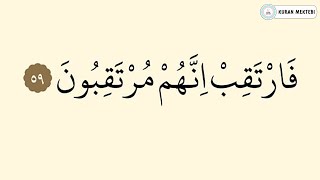 KURAN MEKTEBİ
فَارْتَقِبْ اِنَّهُمْ مُرْتَقِبُونَ ٥٩